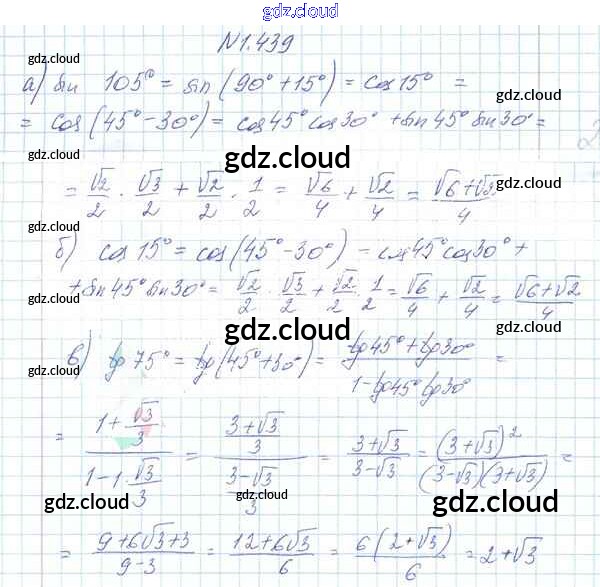 gdz.cloud
N1.439
gdz.cloud
а) sin 105° = sin(90° + 15°) = cos 15° =
gdz.cloud
= cos(45° - 30°) = cos45° cos30° + sin45° sin30° =
gdz.cloud
gdz.cloud
= √2/2 · √3/2 + √2/2 · 1/2 = √6/4 + √2/4 = (√6+√2)/4
gdz.cloud
б) cos 15° = cos(45° - 30°) = cos45° cos30° +
gdz.cloud
+ sin45° sin30° = √2/2 · √3/2 + √2/2 · 1/2 = √6/4 + √2/4 = (√6+√2)/4
gdz.cloud
gdz.cloud
в) tg 75° = tg(45° + 30°) = (tg45° + tg30°)/(1 - tg45° tg30°) =
gdz.cloud
gdz.cloud
= (1 + √3/3)/(1 - 1·√3/3) = ((3+√3)/3)/((3-√3)/3) = (3+√3)/(3-√3) = (3+√3)²/((3-√3)(3+√3)) =
gdz.cloud
gdz.cloud
gdz.cloud
= (9+6√3+3)/(9-3) = (12+6√3)/6 = 6(2+√3)/6 = 2+√3
gdz.cloud
gdz.cloud